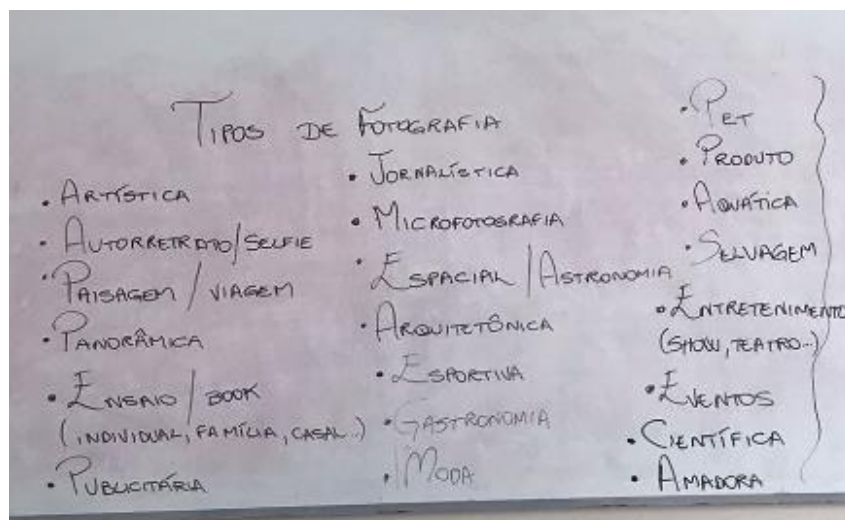 TIPOS DE FOTOGRAFIA
• ARTÍSTICA
• AUTORRETRATO/SELFIE
• PAISAGEM / VIAGEM
• PANORÂMICA
• ENSAIO / BOOK
(INDIVIDUAL, FAMÍLIA, CASAL...)
• PUBLICITÁRIA
• JORNALÍSTICA
• MICROFOTOGRAFIA
• ESPACIAL / ASTRONOMIA
• ARQUITETÔNICA
• ESPORTIVA
• GASTRONOMIA
• MODA
• PET
• PRODUTO
• AQUÁTICA
• SELVAGEM
• ENTRETENIMENTO
(SHOW, TEATRO...)
• EVENTOS
• CIENTÍFICA
• AMADORA